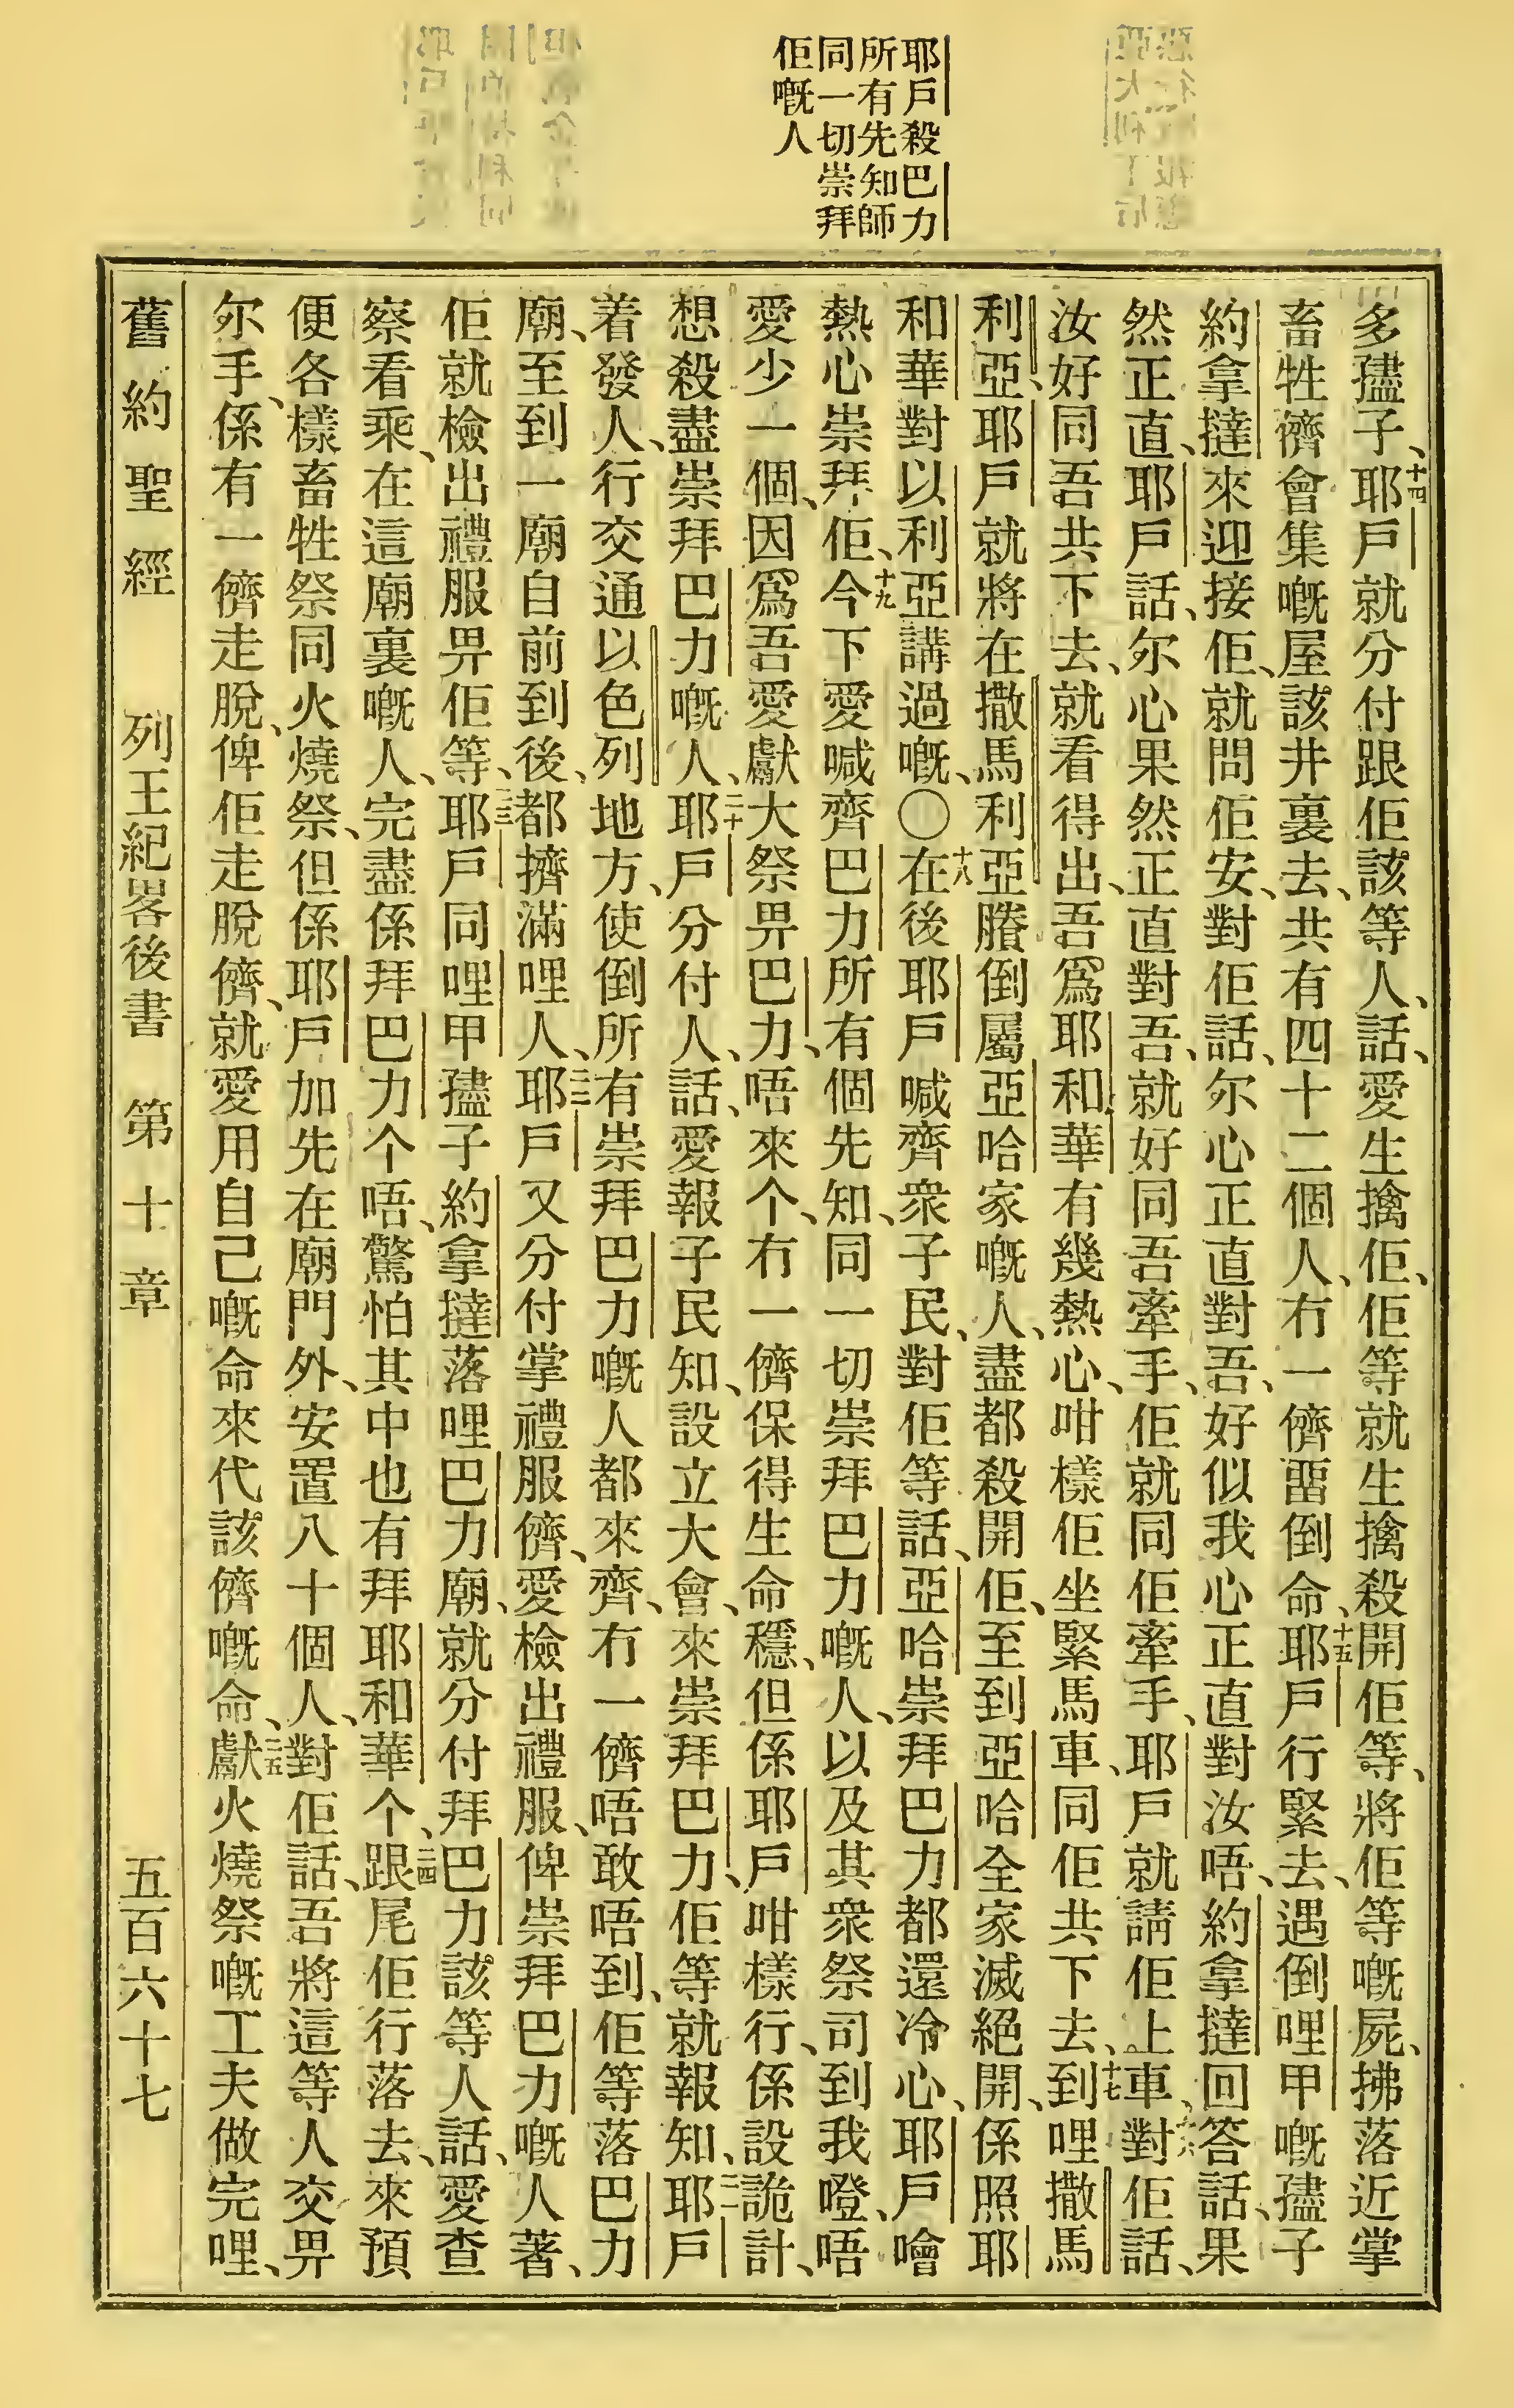 耶戶殺巴力
所有先知師
同一切崇拜
佢嘅人
多孻子、十四耶戶就分付跟佢該等人、話、愛生擒佢、佢等就生擒殺開佢等、將佢等嘅屍、拂落近掌
畜牲儕會集嘅屋該井裏去、共有四十二個人、冇一儕畱倒命、十五耶戶行緊去、遇倒哩甲嘅孻子
約拿撻來迎接佢、就問佢安、對佢話、尔心正直對吾、好似我心正直對汝唔、約拿撻回答話、果
然正直、耶戶話、尔心果然正直對吾、就好同吾牽手、佢就同佢牽手、耶戶就請佢上車、十六對佢話、
汝好同吾共下去、就看得出、吾爲耶和華有幾熱心、咁樣佢坐緊馬車、同佢共下去、十七到哩撒馬
利亞、耶戶就將在撒馬利亞賸倒屬亞哈家嘅人、盡都殺開佢、至到亞哈全家滅絕開、係照耶
和華對以利亞講過嘅、〇十八在後耶戶喊齊衆子民、對佢等話、亞哈崇拜巴力都還冷心、耶戶噲
熱心崇拜佢、十九今下愛喊齊巴力所有個先知、同一切崇拜巴力嘅人、以及其衆祭司到我嶝、唔
愛少一個、因爲吾愛獻大祭畀巴力、唔來个、冇一儕保得生命穩、但係耶戶咁樣行、係設詭計、
想殺盡崇拜巴力嘅人、二十耶戶分付人、話、愛報子民知、設立大會、來崇拜巴力、佢等就報知、二一耶戶
着發人、行交通以色列地方、使倒所有崇拜巴力嘅人都來齊、冇一儕唔敢唔到、佢等落巴力
廟、至到一廟自前到後、都擠滿哩人、二二耶戶又分付掌禮服儕、愛檢出禮服、俾崇拜巴力嘅人著、
佢就檢出禮服畀佢等、二三耶戶同哩甲孻子約拿撻落哩巴力廟、就分付拜巴力該等人話、愛查
察看乘、在這廟裏嘅人、完盡係拜巴力个唔、驚怕其中也有拜耶和華个、二四跟尾佢行落去、來預
便各樣畜牲祭同火燒祭、但係耶戶加先在廟門外、安置八十個人、對佢話、吾將這等人交畀
尔手、係有一儕走脫、俾佢走脫儕、就愛用自己嘅命來代該儕嘅命、二五獻火燒祭嘅工夫做完哩、
舊約聖經　列王紀畧後書　第十章　五百六十七